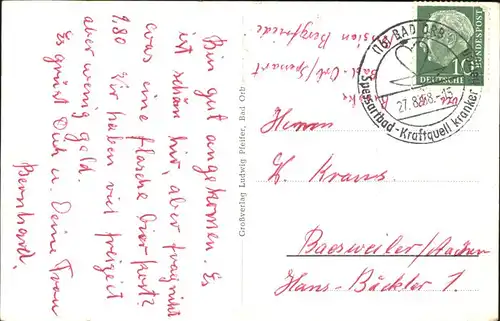 Bin gut angekommen. Es
ist schön hir, aber frag nicht
was eine flasche Bier kost?
1.80 Wir haben viel freizeit
aber wenig geld.
Es grüst Dich u. Deine Frau
Bernhard.
Großverlag Ludwig Pfeifer, Bad Orb
Pension Bergfriede
Bad-Orb/Spessart
(16) BAD ORB
27.8.58.-15
Spessartbad-Kraftquell kranker
10
DEUTSCHE BUNDESPOST
Herrn
H. Krans.
Baesweiler/Aachen
Hans-Böckler 1.